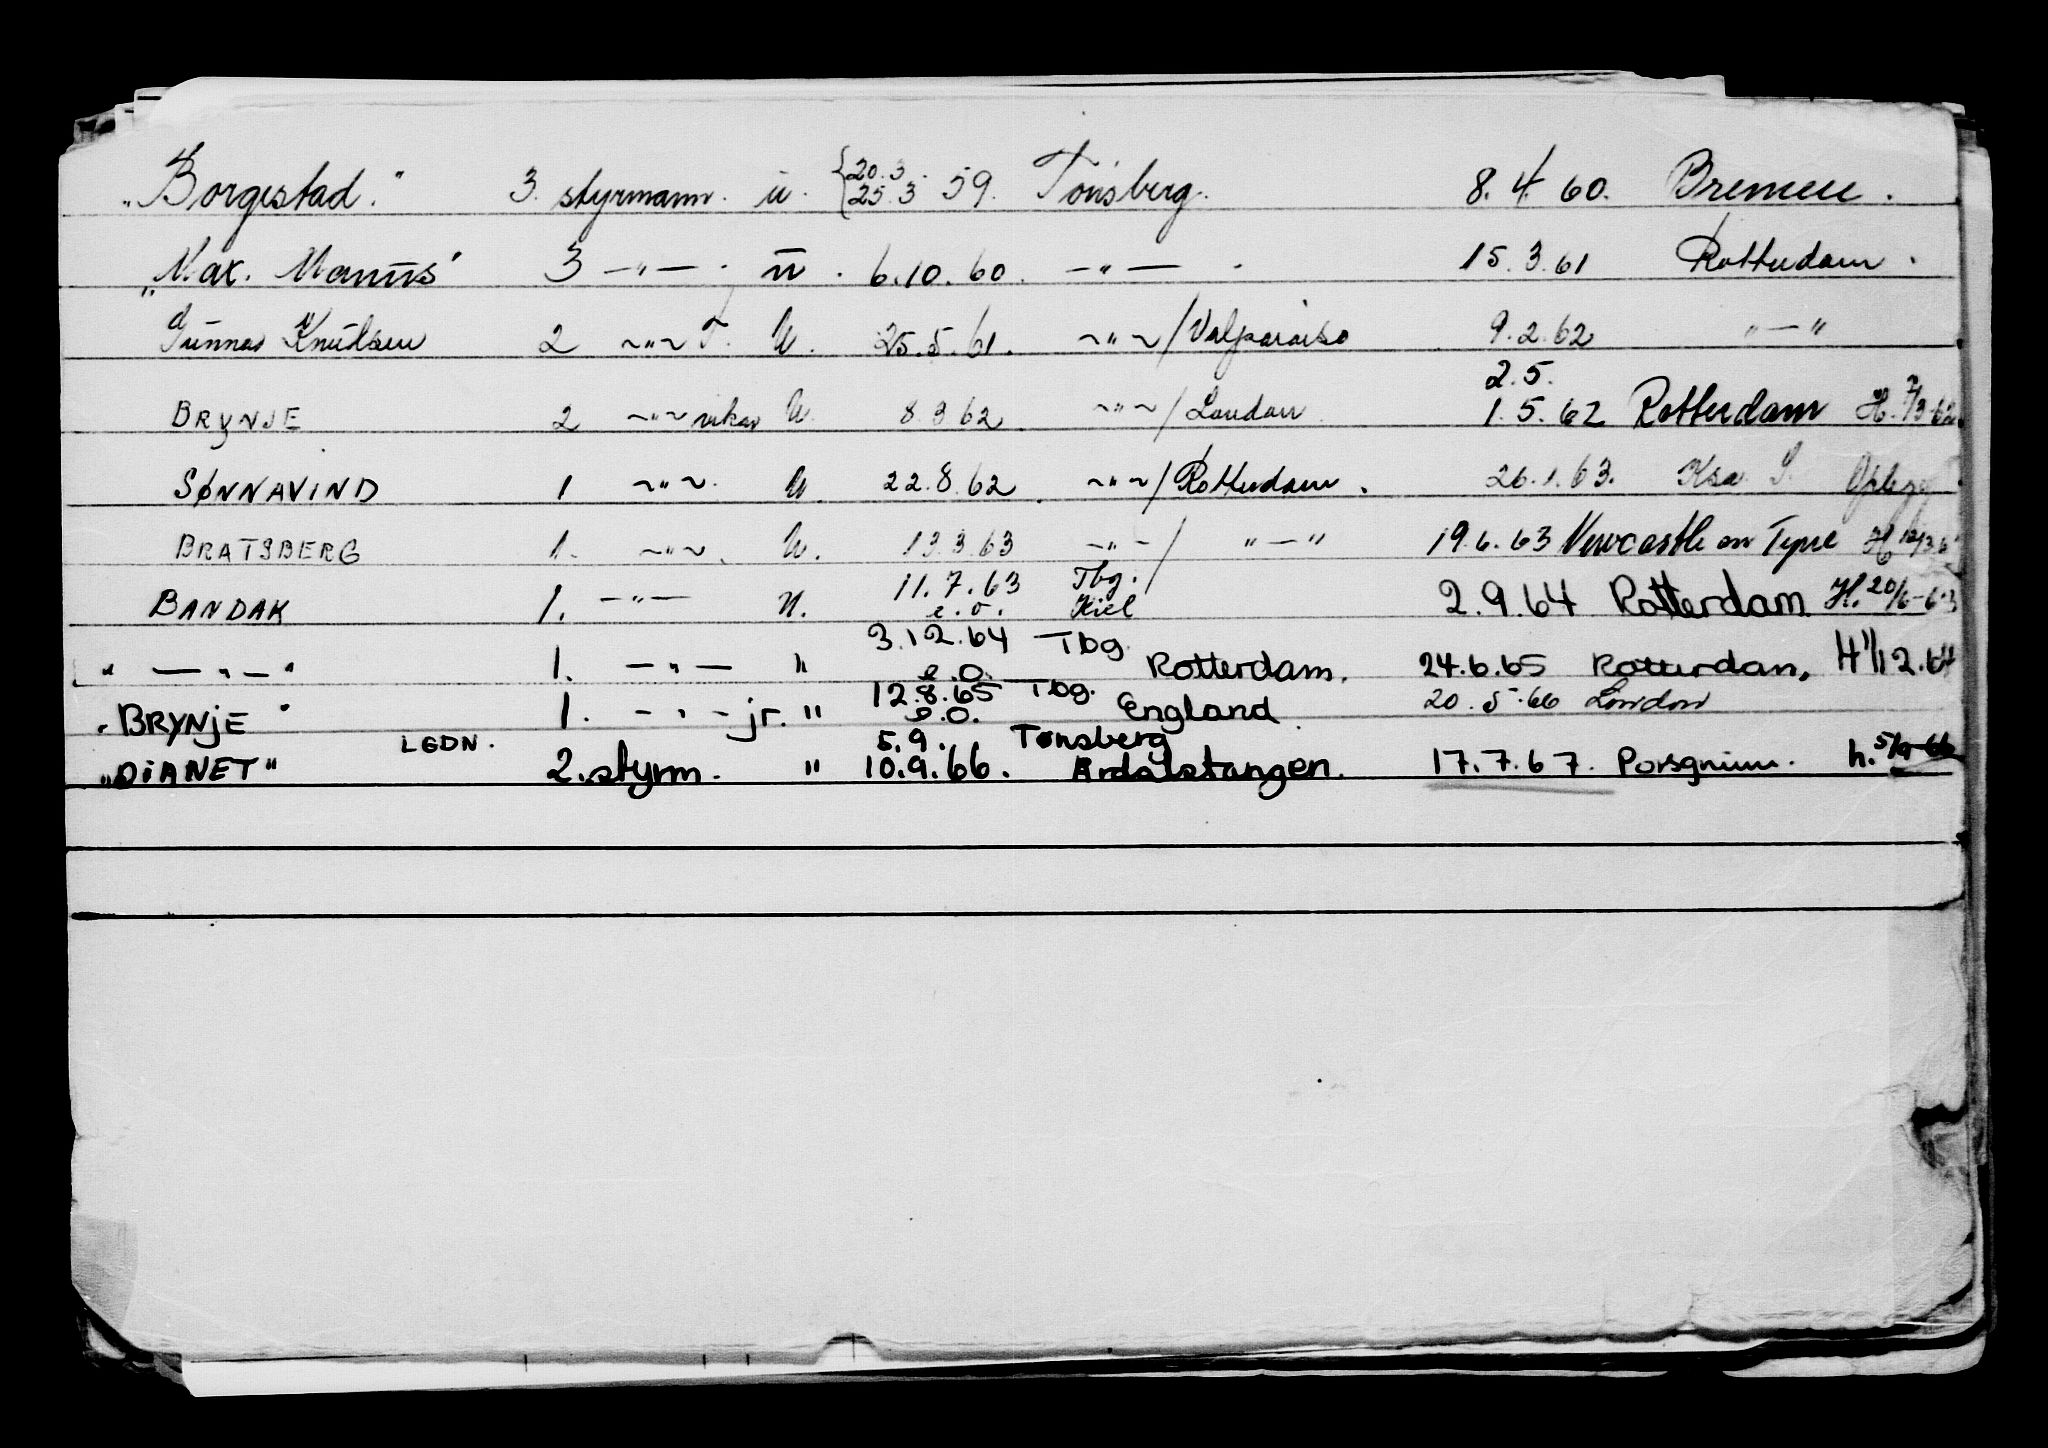 "Borgestad." 3. styrmann. u. {20.3 25.3 59. Tønsberg. 8.4.60. Bremen.
"Max. Manus" 3 —"— . u . 6.10.60. —"— . 15.3.61 Rotterdam.
Gunnar Knudsen 2 ~"~ T. U. 25.5.61. ~"~/Valparaiso 9.2.62 "—"
2.5.
BRYNJE 2 ~"~ vikar U. 8.3.62. ~"~/London. 1.5.62 Rotterdam H. 7/3-62
SØNNAVIND 1 ~"~. U. 22.8.62. ~"~/Rotterdam. 26.1.63.
BRATSBERG 1. ~"~. U. 13.3.63 —"—/ "—" 19.6.63 Newcastle on Tyne
11.7.63 Tbg.
BANDAK 1. —"— U. e.o. Kiel 2.9.64 Rotterdam H. 20/6-63
3.12.64 Tbg.
" — " — " 1. —"— " e.o. Rotterdam. 24.6.65 Rotterdam. H 1/12.64
12.8.65 Tbg. 20.5.66 London
"BRYNJE" 1. —"— jr. " e.o. England
LGDN. 5.9. Tønsberg
"DIANET" 2. styrm. " 10.9.66. Årdalstangen. 17.7.67. Porsgrunn. h. 5/9-66